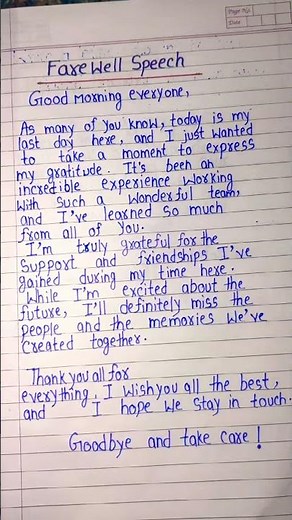 Page No.
Date
FareWell Speech
Good Morning everyone,
As many of you know, today is my
last day here, and I just wanted
to take a moment to express
my gratitude. It's been an
incredible experience working
with such a wonderful team,
and I've learned so much
from all of you.
I'm truly grateful for the
support and friendships I've
gained during my time here.
While I'm excited about the
future, I'll definitely miss the
people and the memories we've
created together.
Thank you all for
everything, I wish you all the best,
and I hope we stay in touch.
Goodbye and take care!